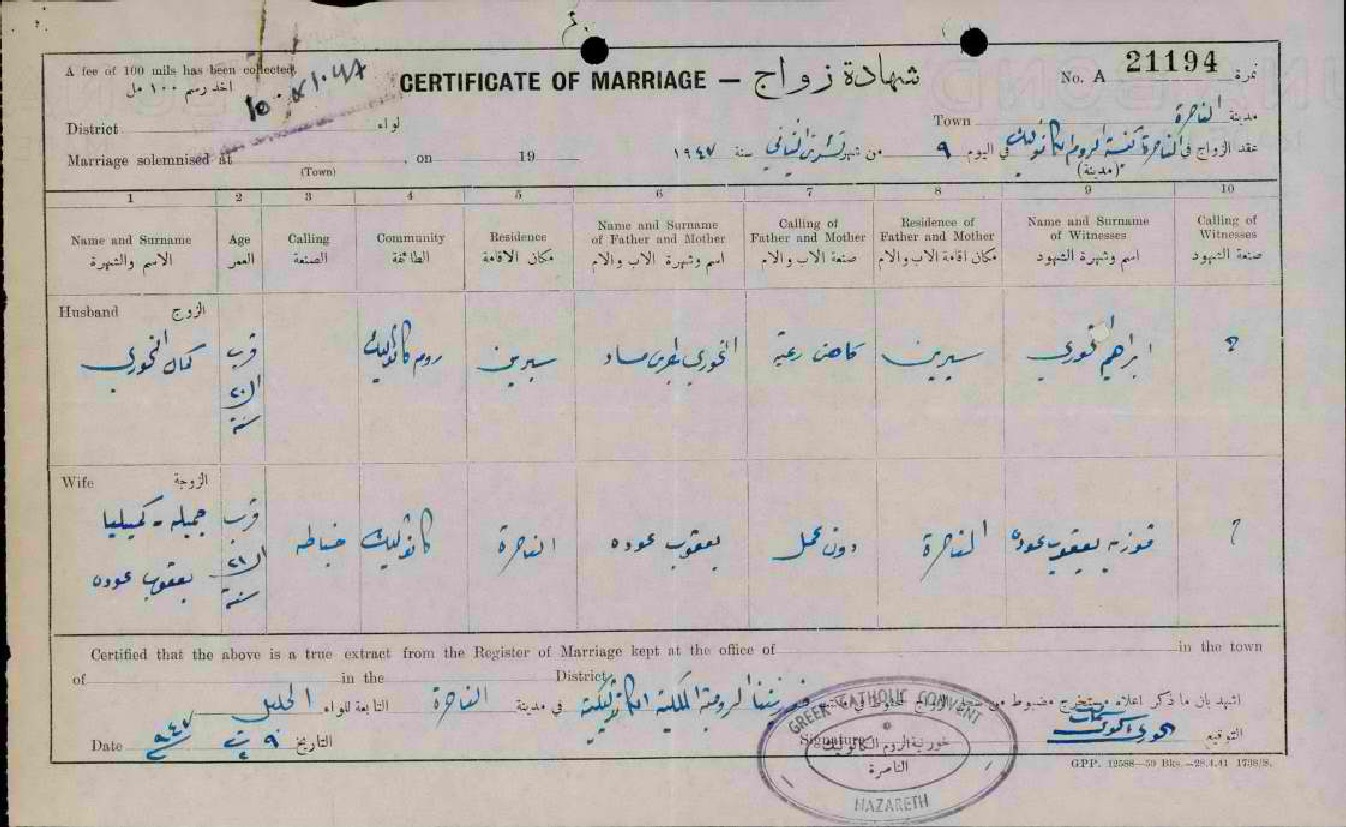 A fee of 100 mils has been collected.
اخذ رسم ١٠٠ مل
CERTIFICATE OF MARRIAGE — شهادة زواج
No. A 21194 نمرة
District لواء
Town الناصرة مدينة
Marriage solemnised at , on 19
(Town)
عقد الزواج في الناصرة كنيسة الروم الكاثوليك في اليوم ٩ من شهر تشرين الثاني سنة ١٩٤٧
(مدينة)
1 2 3 4 5 6 7 8 9 10
Name and Surname
الاسم والشهرة
Age
العمر
Calling
الصنعة
Community
الطائفة
Residence
مكان الاقامة
Name and Surname
of Father and Mother
اسم وشهرة الاب والام
Calling of
Father and Mother
صنعة الاب والام
Residence of
Father and Mother
مكان اقامة الاب والام
Name and Surname
of Witnesses
اسم وشهرة الشهود
Calling of
Witnesses
صنعة الشهود
Husband الزوج
كمال الخوري
قرب
ال٢٠
سنة
روم كاثوليك
سيرين
الخوري بطرس سعاد
كاهن رعية
سيرين
ابراهيم الخوري
?
Wife الزوجة
جميله - كميليا
يعقوب عوده
قرب
ال٢١
سنة
خياطه
كاثوليك
الناصرة
يعقوب عوده
دون عمل
الناصرة
فوزيه يعقوب عوده
?
Certified that the above is a true extract from the Register of Marriage kept at the office of in the town
of in the District
اشهد بان ما ذكر اعلاه مستخرج مضبوط من سجل الرومية الملكية الكاثوليكية في مدينة الناصرة التابعة للواء الجليل
Date التاريخ ٩ ت٢ ٩٤٧
Signature التوقيع
GREEK CATHOLIC CONVENT
خورنية الروم الكاثوليك
الناصرة
NAZARETH
GPP. 12588—50 Bks.—28.4.41 1798/S.